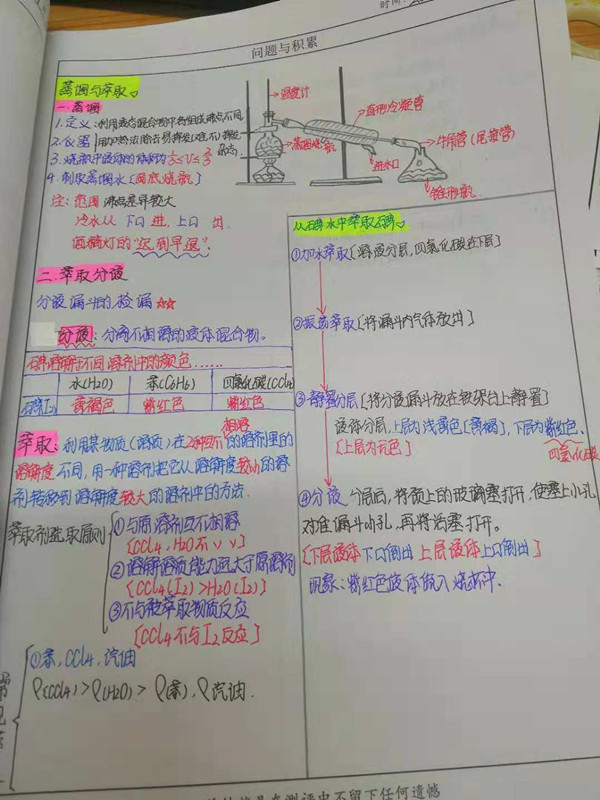 时间:
问题与积累
蒸馏与萃取。
一.蒸馏
1.定义:利用液态混合物中各组成沸点不同,
2.仪器 用加热法除去易挥发(难不)挥发
杂质
3.烧瓶中液体的体积为1/3≤V≤2/3
4.制取蒸馏水[圆底烧瓶]
注:范围 沸点差异较大
冷水从 下口 进, 上口 出.
酒精灯的"迟到早退".
温度计
直形冷凝管
蒸馏烧瓶
进水口
牛角管(尾接管)
锥形瓶
二.萃取分液
分液漏斗的检漏☆☆
分液:分离不相溶的液体混合物。
石碘溶解于不同溶剂中的颜色......
水(H2O) 苯(C6H6) 四氯化碳(CCl4
I2 黄褐色 紫红色 紫红色
萃取:利用某物质(溶质)在2种互不相溶的溶剂里的
溶解度不同,用一种溶剂把它从溶解度较小的溶
剂转移到溶解度较大的溶剂中的方法.
萃取剂选取原则
①与原溶剂互不相溶
[CCl4,H2O不√√]
②溶解溶质能力远大于原溶剂
[CCl4(I2)>H2O(I2)]
③不与被萃取物质反应
[CCl4不与I2反应]
①苯,CCl4,汽油
ρ(CCl4)>ρ(H2O)>ρ(苯),ρ汽油.
从碘水中萃取碘。
①加水萃取[溶液分层,四氯化碳在下层]
②振荡萃取[将漏斗内气体放出]
③静置分层[将分液漏斗放在铁架台上静置]
液体分层,上层为浅黄色[黄褐],下层为紫红色.
[上层为无色]
四氯化碳
④分液 分层后,将颈上的玻璃塞打开,使塞上小孔
对准漏斗小孔,再将活塞打开.
[下层液体下口倒出 上层液体上口倒出]
现象:紫红色液体流入烧杯中.
在测评中不留下任何遗憾